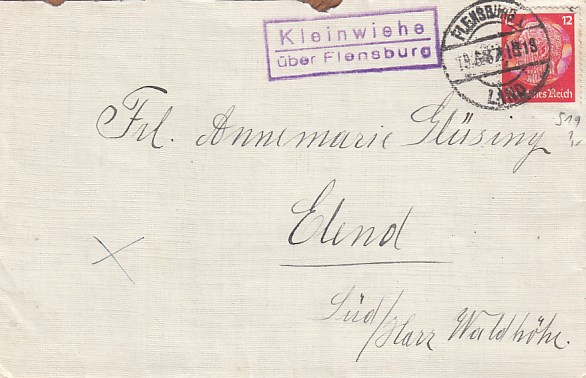 Kleinwiehe
über Flensburg
FLENSBURG
LAND
12
Deutsches Reich
Frl. Annemarie Glüsing
Elend
Süd/Harz Waldhöhe.